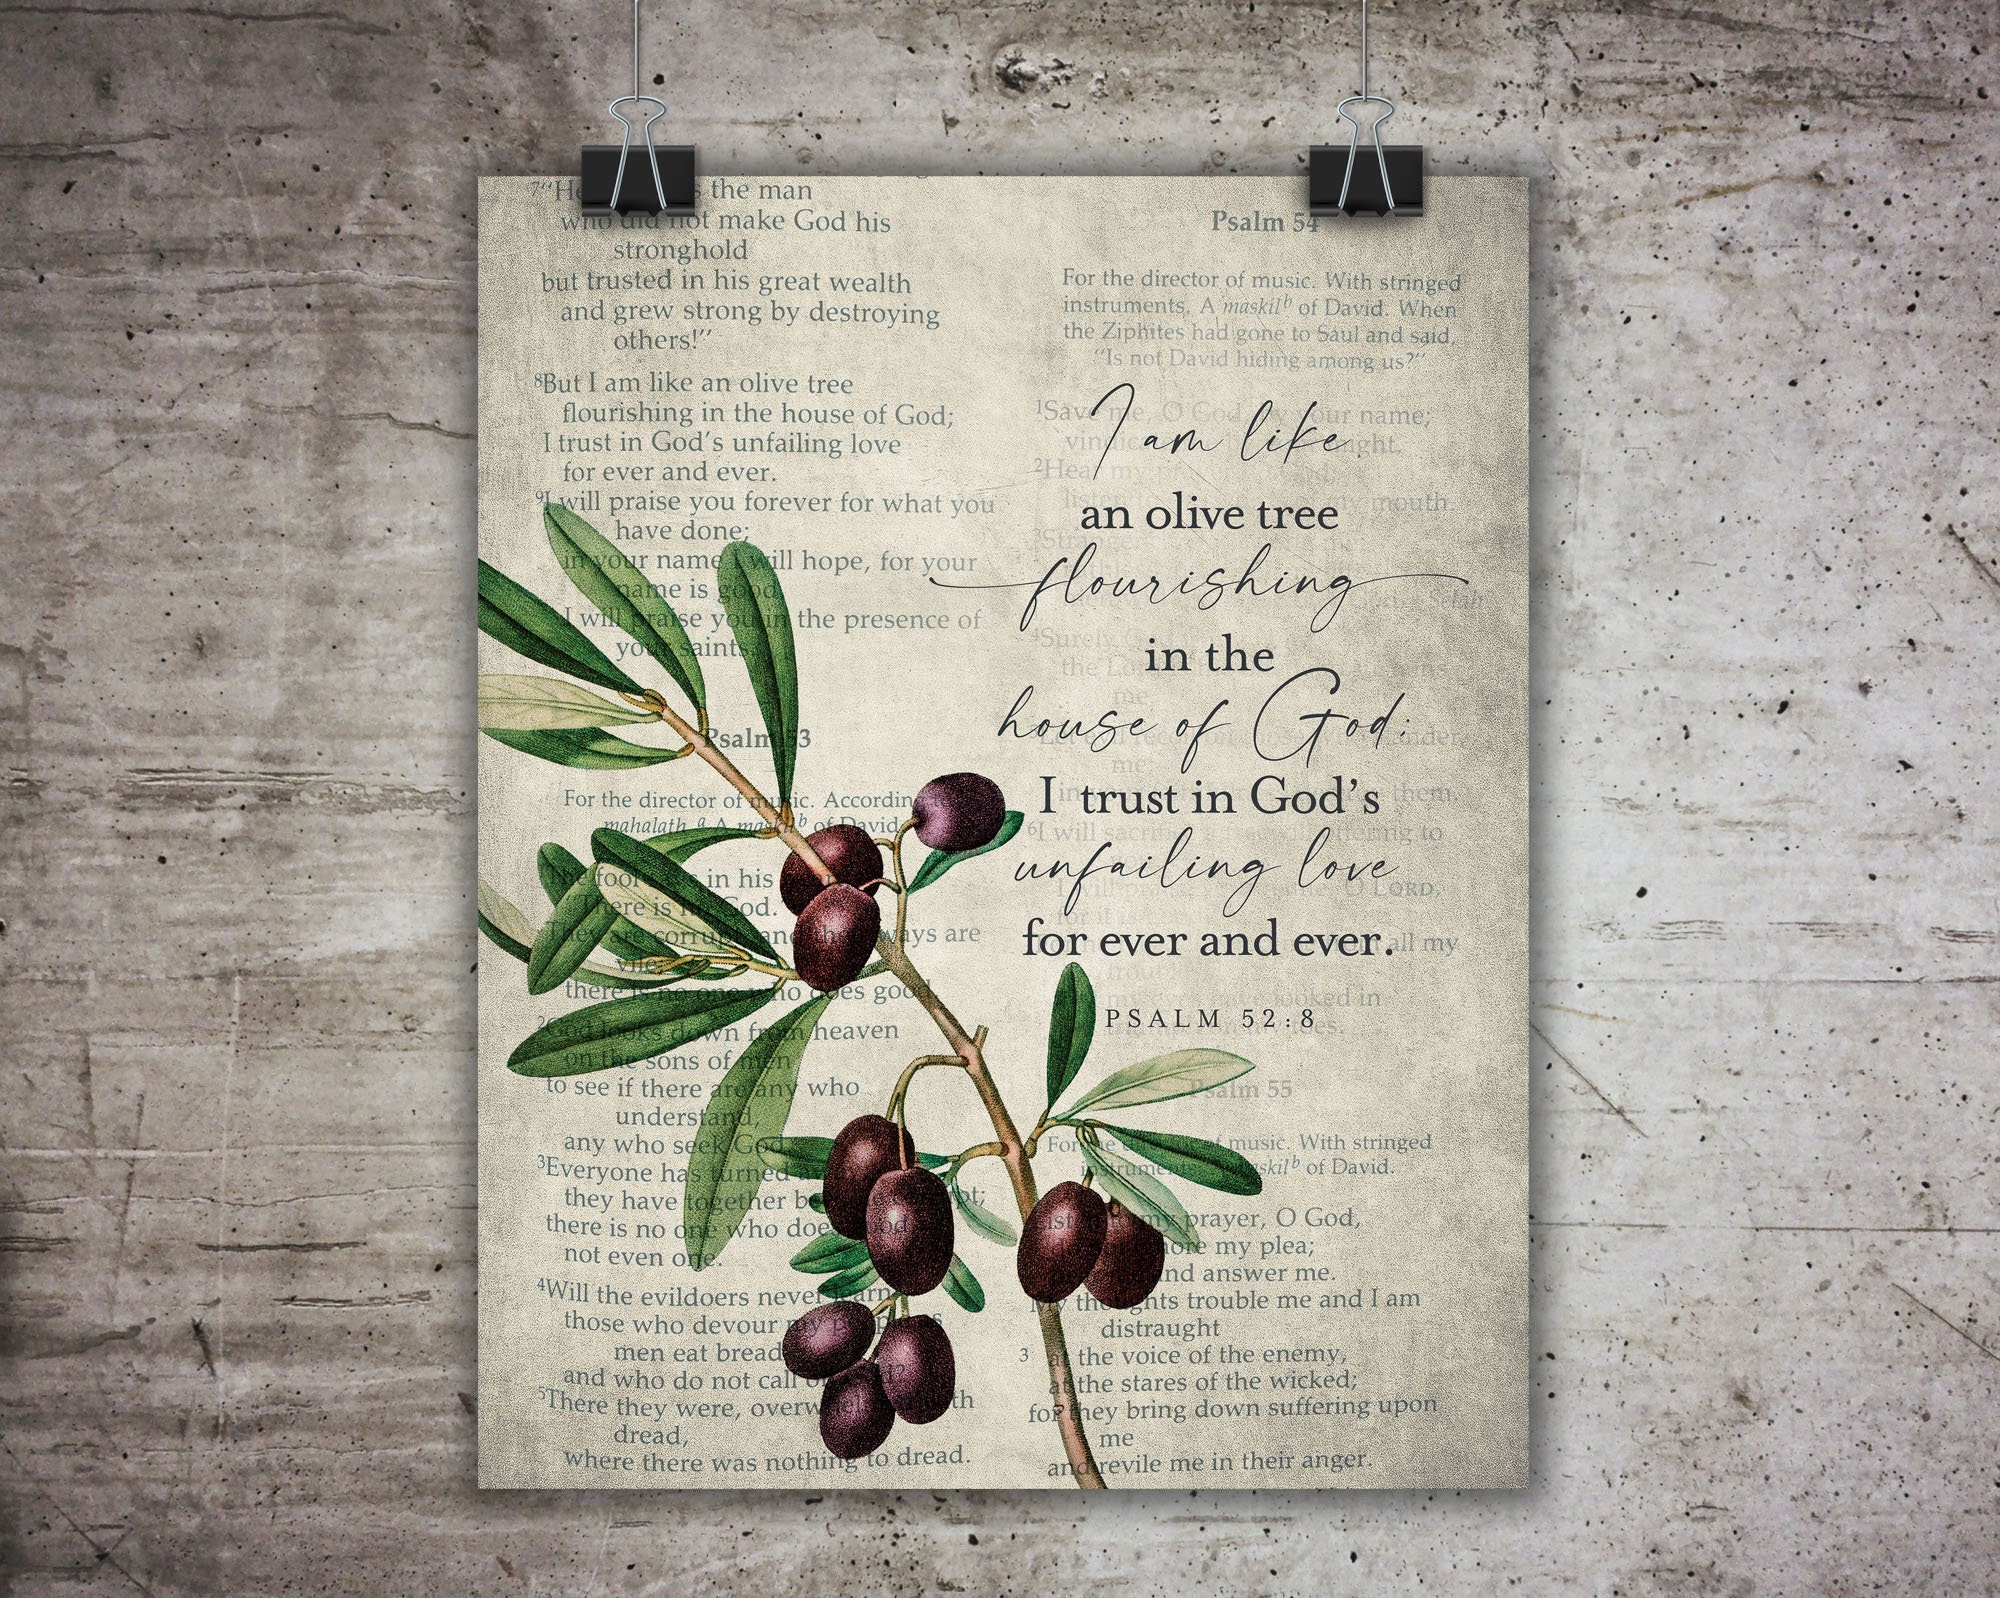 7“He s the man
who did not make God his
stronghold
but trusted in his great wealth
and grew strong by destroying
others!”
8But I am like an olive tree
flourishing in the house of God;
I trust in God’s unfailing love
for ever and ever.
9I will praise you forever for what you
have done;
in your name I will hope, for your
name is good.
I will praise you in the presence of
your saints.
Psalm 53
For the director of music. According
mahalath.a A maskil b of David.
The fool says in his
There is no God.
They are corrupt, and their ways are
vile;
there is no one who does good.
2God looks down from heaven
on the sons of men
to see if there are any who
understand,
any who seek God
3Everyone has turned
they have together
there is no one who does good
not even one.
4Will the evildoers never learn
those who devour my people as
men eat bread
and who do not call
5There they were, overw th
dread,
where there was nothing to dread.
Psalm 54
For the director of music. With stringed
instruments. A maskil b of David. When
the Ziphites had gone to Saul and said,
“Is not David hiding among us?”
1Save me, O God, by your name;
2Hear my
mouth.
Selah
4Surely
the
me
me;
them.
6I will
to
O LORD,
all my
looked in
I am like
an olive tree
flourishing
in the
house of God:
I trust in God’s
unfailing love
for ever and ever.
PSALM 52:8
Psalm 55
For the of music. With stringed
instruments. maskil b of David.
my prayer, O God,
ignore my plea;
and answer me.
My thoughts trouble me and I am
distraught
3 at the voice of the enemy,
at the stares of the wicked;
for they bring down suffering upon
me
and revile me in their anger.